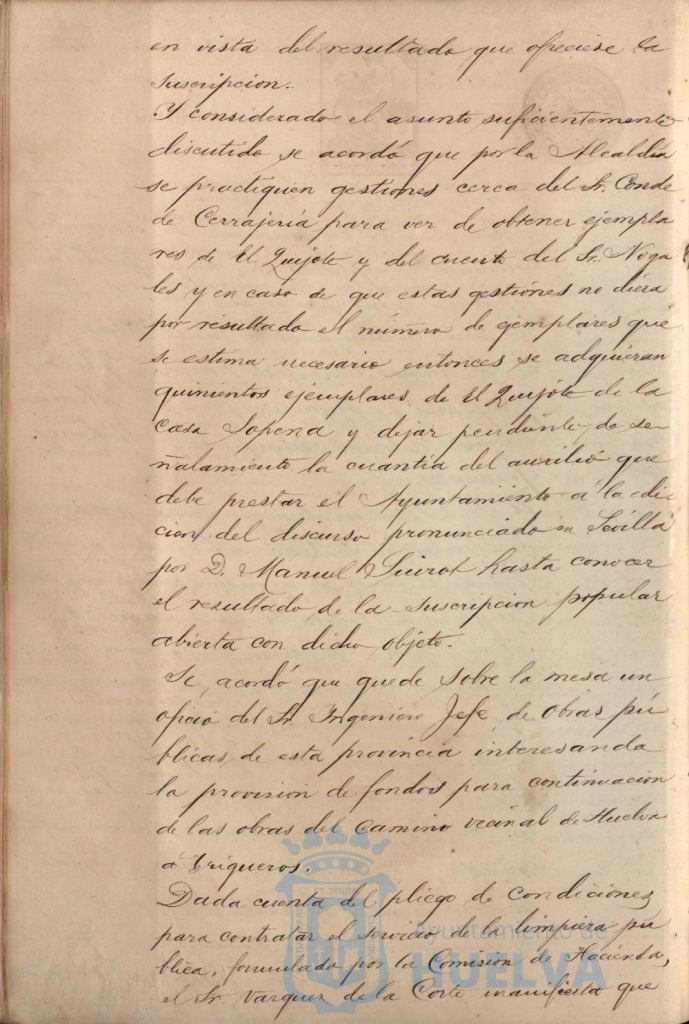 en vista del resultado que ofreciese la
suscripcion.
Y considerado el asunto suficientemente
discutido se acordó que por la Alcaldia
se practiquen gestiones cerca del Sr. Conde
de Cerrajeria para ver de obtener ejempla
res de El Quijote y del cuento del Sr. Noga
les y en caso de que estas gestiones no diera
por resultado el número de ejemplares que
se estima necesario entonces se adquieran
quinientos ejemplares de El Quijote de la
casa Sopena y dejar pendiente de se-
ñalamiento la cuantia del auxilio que
debe prestar el Ayuntamiento á la edi
cion del discurso pronunciado en Sevilla
por D. Manuel Siurot hasta conocer
el resultado de la suscripcion popular
abierta con dicho objeto.
Se acordó que quede sobre la mesa un
oficio del Sr. Ingeniero Jefe de obras pú
blicas de esta provincia interesando
la provision de fondos para continuacion
de las obras del camino vecinal de Huelva
a Trigueros.
Dada cuenta del pliego de condiciones
para contratar el servicio de la limpieza pú
blica, formulado por la Comision de Hacienda,
el Sr. Vazquez de la Corte manifiesta que
Ayuntamiento de
HUELVA